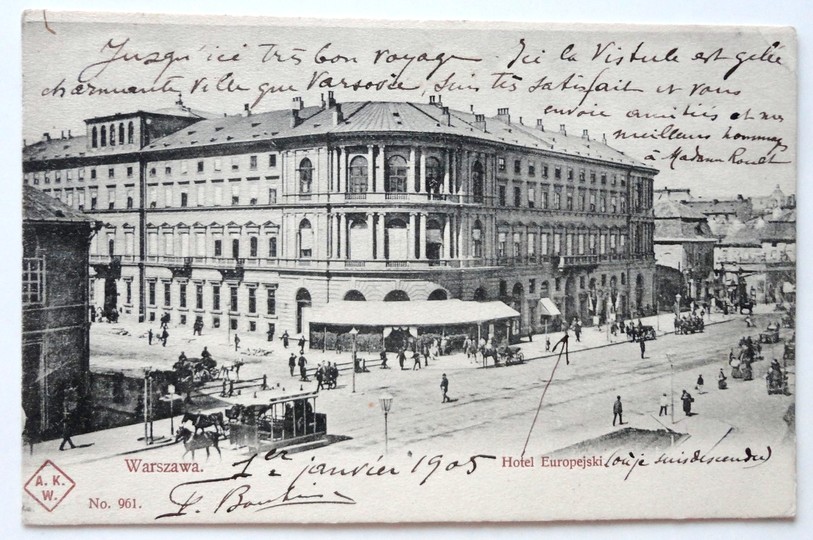 Jusqu'ici très bon voyage. Ici la Vistule est gelée
charmante ville que Varsovie, suis très satisfait et vous
envoie amitiés et mes
meilleurs hommages
à Madame
Warszawa.
1er janvier 1905
Hotel Europejski.
(où je suis descendu)
A. K.
W.
No. 961.